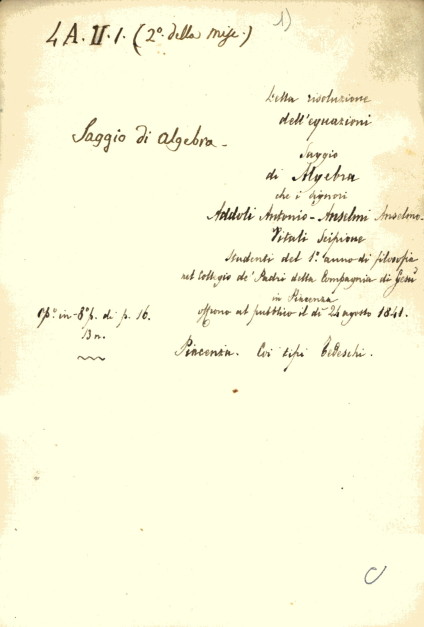 4 A. II. 1. (2º. della Misc.)
1)
Saggio di Algebra.
Della risoluzione
dell'equazioni
Saggio
di Algebra
che i signori
Addoli Antonio - Anselmi Anselmo -
Vitali Scipione
Studenti del 1º. anno di filosofia
nel Collegio de' Padri della Compagnia di Gesù
in Piacenza
offrono al pubblico il dì 24 agosto 1841.
in-8º. di p. 16.
Piacenza. Coi tipi Tedeschi.